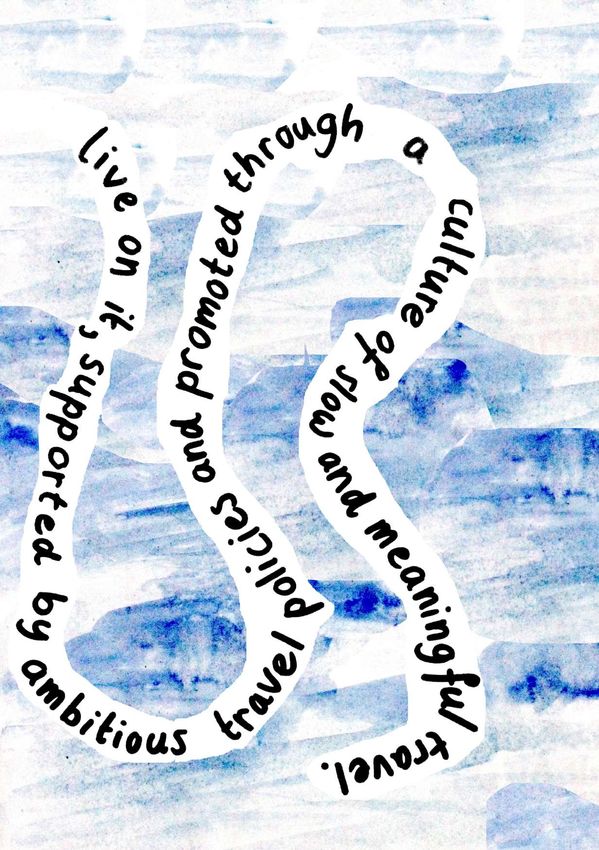 live on it, supported by ambitious travel policies and promoted through a culture of slow and meaningful travel.